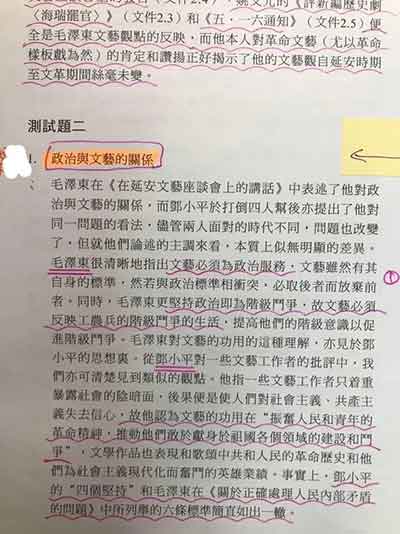 〈海瑞罷官〉》（文件2.3）和《五．一六通知》（文件2.5）便
全是毛澤東文藝觀點的反映，而他本人對革命文藝（尤以革命
樣板戲為然）的肯定和讚揚正好揭示了他的文藝觀自延安時期
至文革期間絲毫未變。
測試題二
1. 政治與文藝的關係
毛澤東在《在延安文藝座談會上的講話》中表述了他對政
治與文藝的關係，而鄧小平於打倒四人幫後亦提出了他對
同一問題的看法，儘管兩人面對的時代不同，問題也改變
了，但就他們論述的主調來看，本質上似無明顯的差異。
毛澤東很清晰地指出文藝必須為政治服務，文藝雖然有其
自身的標準，然若與政治標準相衝突，必取後者而放棄前
者。同時，毛澤東更堅持政治即為階級鬥爭，故文藝必須
反映工農兵的階級鬥爭的生活，提高他們的階級意識以促
進階級鬥爭。毛澤東對文藝的功用的這種理解，亦見於鄧
小平的思想裏。從鄧小平對一些文藝工作者的批評中，我
們亦可清楚見到類似的觀點。他指一些文藝工作者只着重
暴露社會的陰暗面，後果便是使人們對社會主義、共產主
義失去信心，故他認為文藝的功用在“振奮人民和青年的
革命精神，推動他們敢於獻身於祖國各個領域的建設和鬥
爭”，文學作品也表現和歌頌中共和人民的革命歷史和他
們為社會主義現代化而奮鬥的英雄業績。事實上，鄧小平
的“四個堅持”和毛澤東在《關於正確處理人民內部矛盾
的問題》中所列舉的六條標準簡直如出一轍。
①